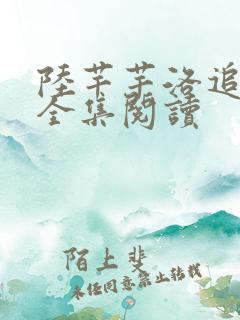 陸芊芊洛追
全集閱讀
陌上斐
未經同意禁止轉載